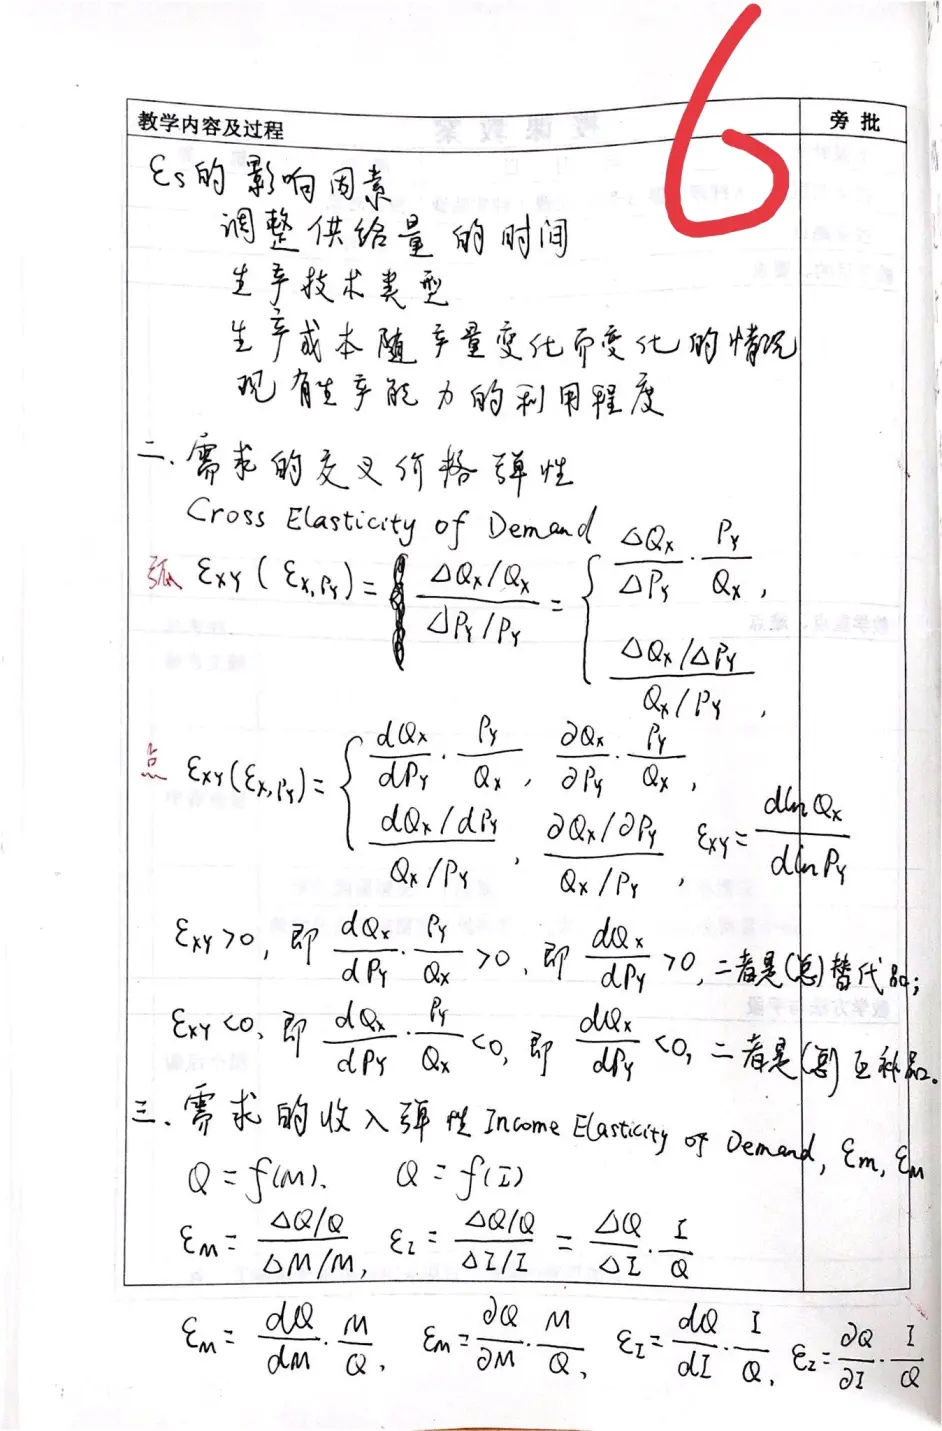 6
教学内容及过程 旁批
εs的影响因素
调整供给量的时间
生产技术类型
生产成本随产量变化而变化的情况
现有生产能力的利用程度
二、需求的交叉价格弹性
Cross Elasticity of Demand
弧 εXY (εX,PY) = (ΔQX/QX)/(ΔPY/PY) = { ΔQX/ΔPY · PY/QX ,
(ΔQX/ΔPY)/(QX/PY) ,
点 εXY (εX,PY) = { dQX/dPY · PY/QX , ∂QX/∂PY · PY/QX ,
(dQX/dPY)/(QX/PY) , (∂QX/∂PY)/(QX/PY) , εXY = dlnQX/dlnPY
εXY >0, 即 dQX/dPY · PY/QX >0, 即 dQX/dPY >0, 二者是(总)替代品;
εXY <0, 即 dQX/dPY · PY/QX <0, 即 dQX/dPY <0, 二者是(总)互补品。
三、需求的收入弹性 Income Elasticity of Demand, εm, εM
Q = f(M). Q = f(I)
εM = (ΔQ/Q)/(ΔM/M), εI = (ΔQ/Q)/(ΔI/I) = ΔQ/ΔI · I/Q
εM = dQ/dM · M/Q, εm = ∂Q/∂M · M/Q, εI = dQ/dI · I/Q, εI = ∂Q/∂I · I/Q